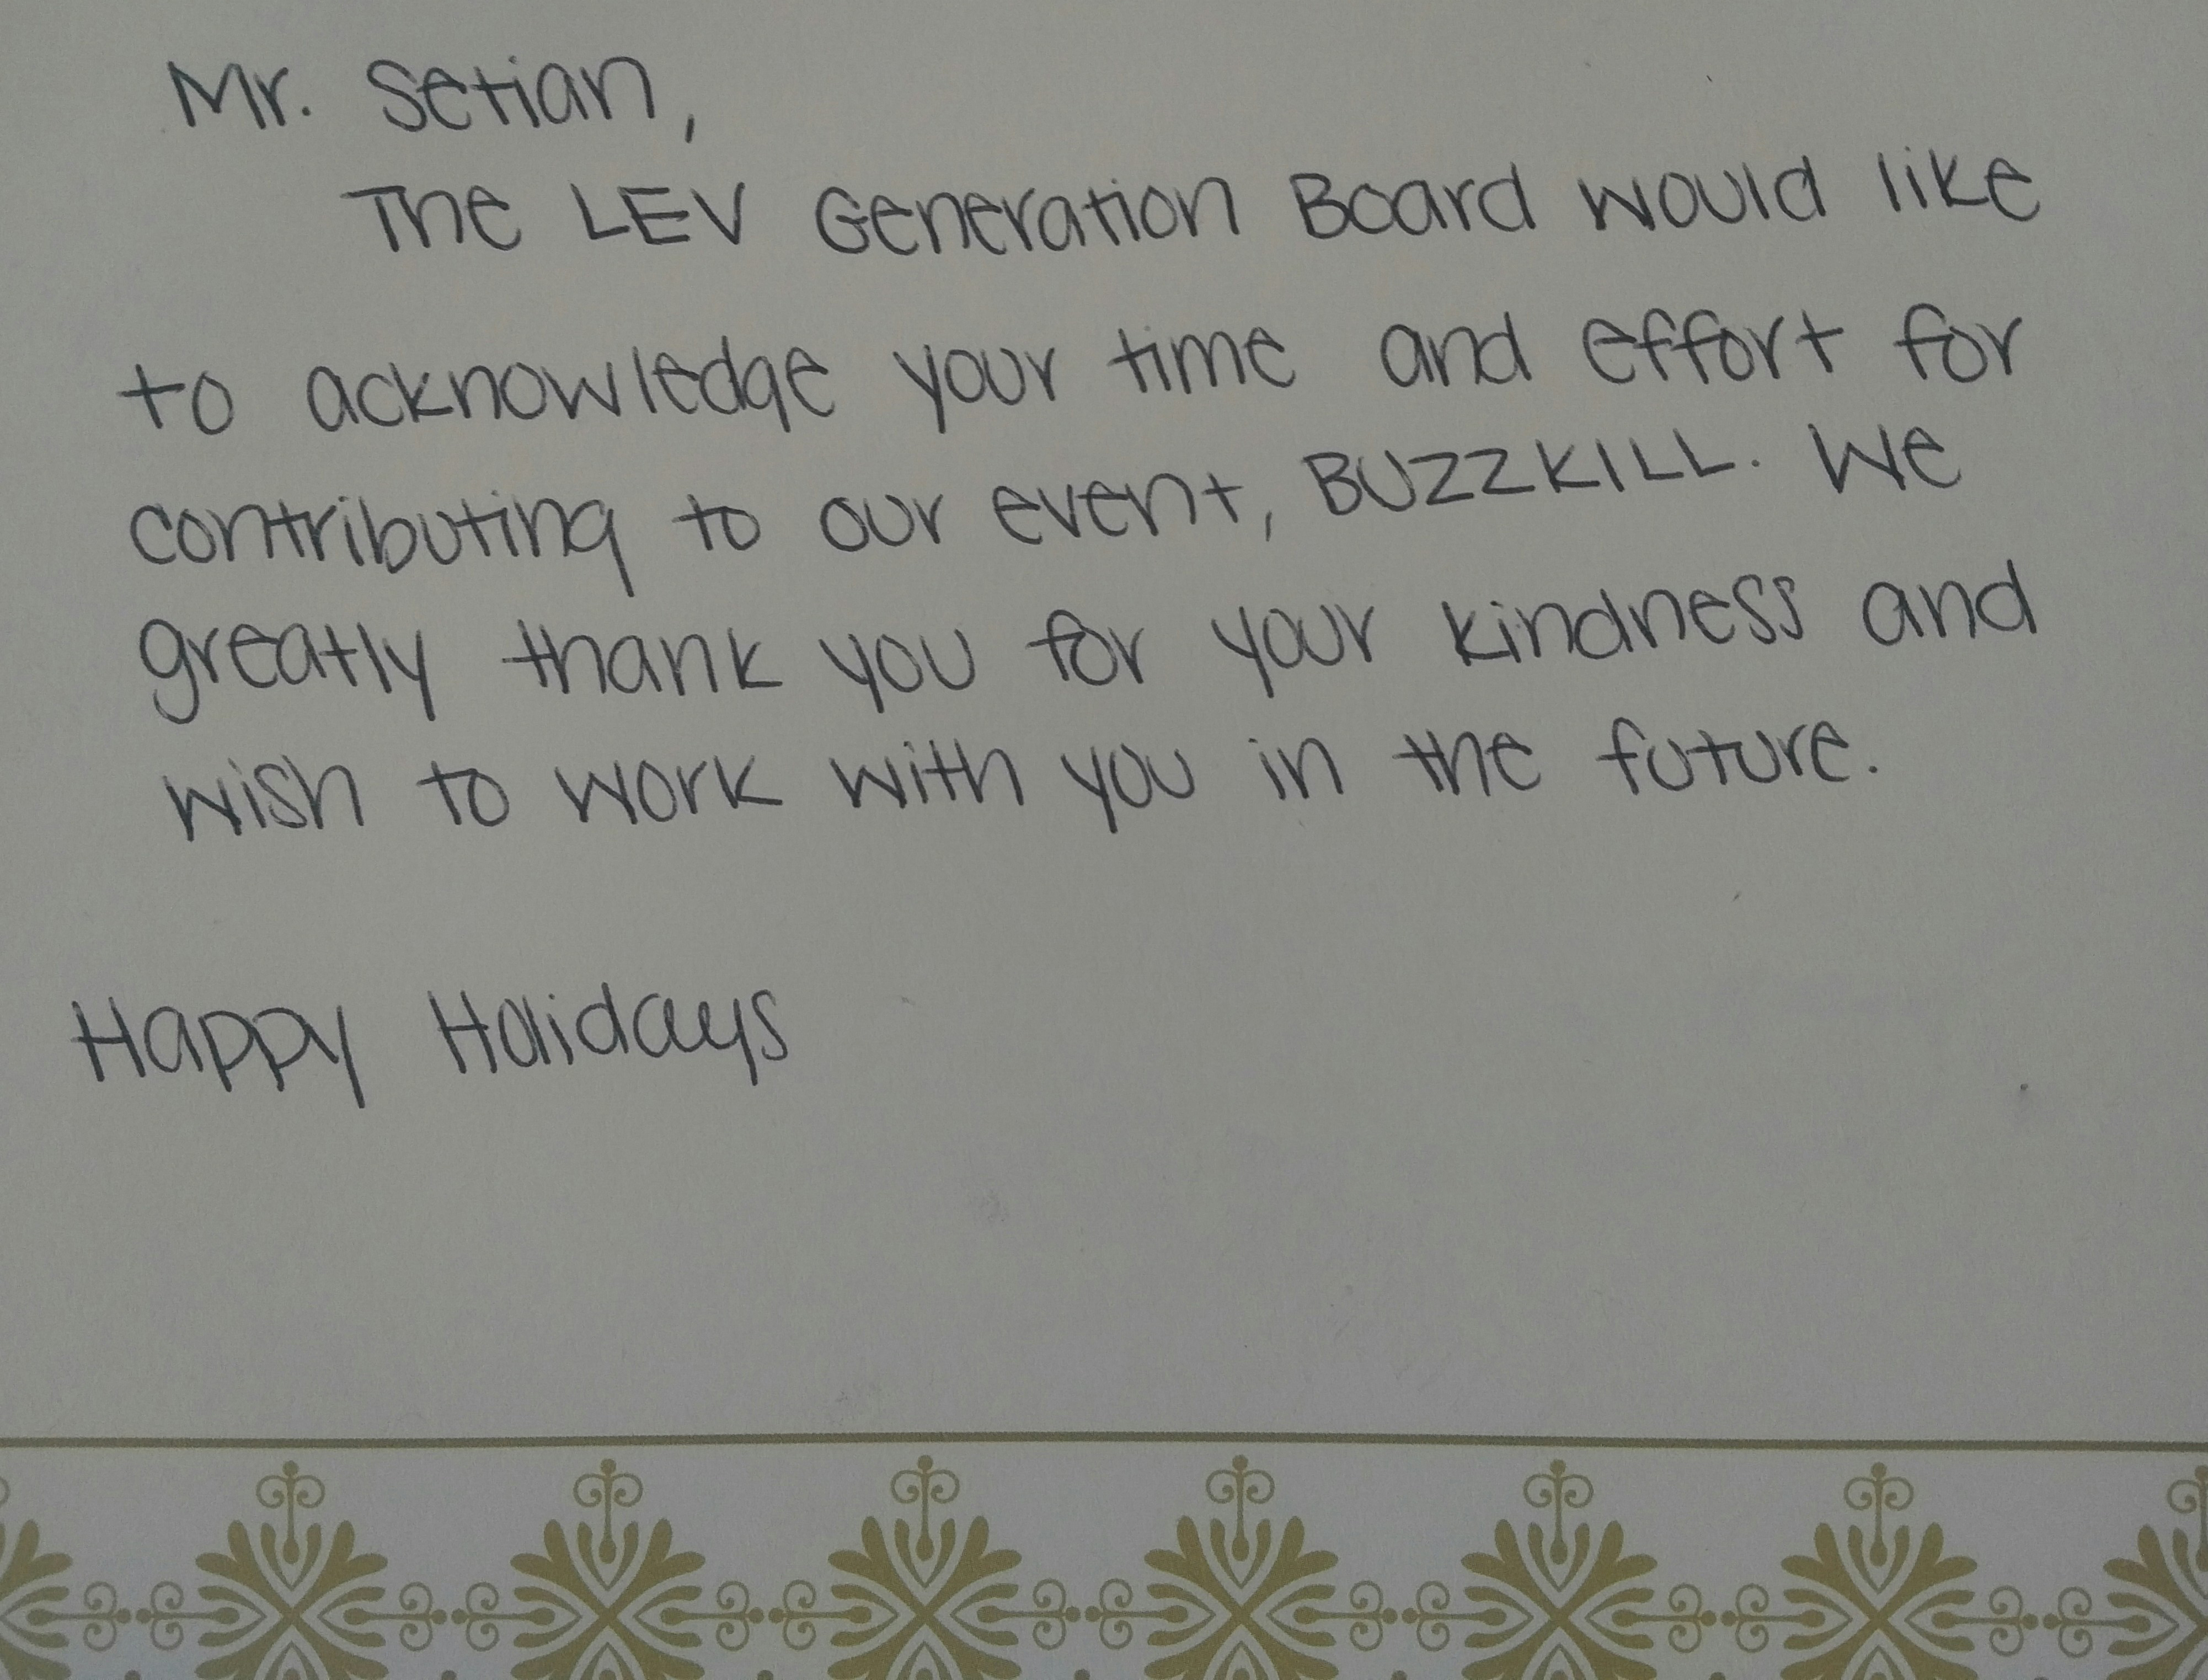 Mr. Setian,
The LEV Generation Board would like
to acknowledge your time and effort for
contributing to our event, BUZZKILL. We
greatly thank you for your kindness and
wish to work with you in the future.
Happy Holidays